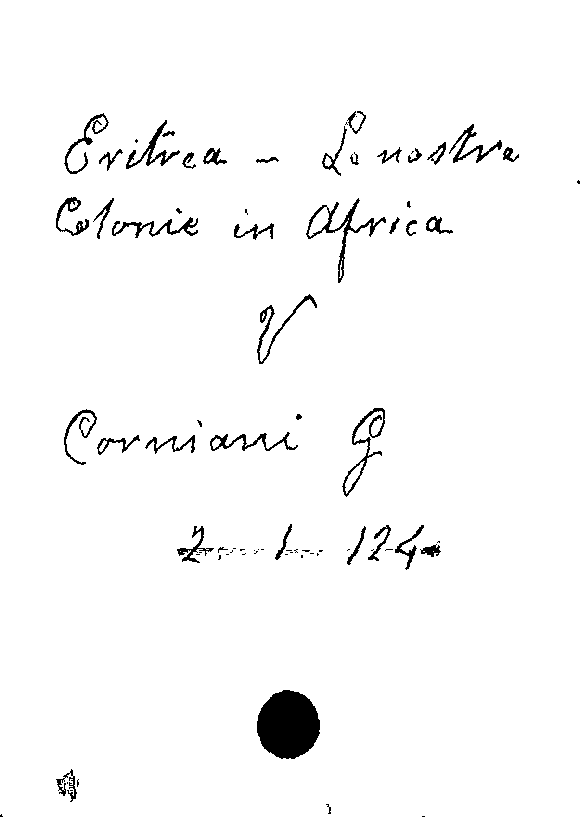 Eritrea - Le nostre
Colonie in Africa
V
Corniani G
2 1 124